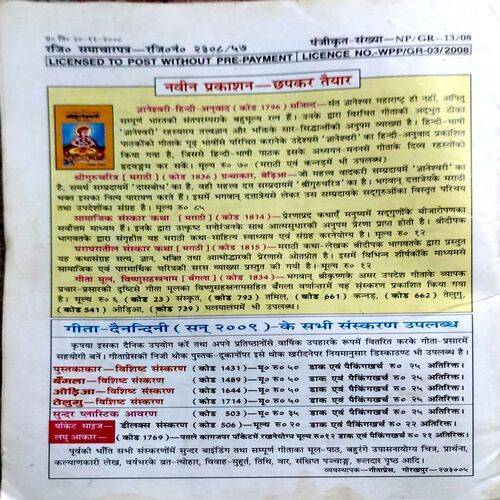 प्र० ति० २०-११-२००८
रजि० समाचारपत्र—रजि०नं० २३०८/५७
पंजीकृत-संख्या—NP/GR-13/08
LICENSED TO POST WITHOUT PRE-PAYMENT
LICENCE NO.-WPP/GR-03/2008
नवीन प्रकाशन—छपकर तैयार
ज्ञानेश्वरी हिन्दी-अनुवाद (कोड 1796) सजिल्द—संत ज्ञानेश्वर महाराष्ट्र ही नहीं, अपितु
सम्पूर्ण भारतकी संतपरम्पराके बहुमूल्य रत्न हैं। उनके द्वारा विरचित गीताकी अद्भुत टीका
'ज्ञानेश्वरी' रहस्यमय तत्त्वज्ञान और भक्तिके सार-सिद्धान्तोंकी अनुपम व्याख्या है। हिन्दी-भाषी
पाठकोंको गीताके गूढ़ भावोंसे परिचित करानेके उद्देश्यसे 'ज्ञानेश्वरी' का हिन्दी अनुवाद प्रकाशित
किया गया है, जिससे हिन्दी-भाषी पाठक इसके अध्ययन-मननसे गीताके दिव्य रहस्योंको
हृदयङ्गम कर सकें। मूल्य रु० ७० (मराठी एवं कन्नड़में भी उपलब्ध)
श्रीगुरुचरित्र [ मराठी ] ( कोड 1836 ) ग्रन्थाकार, बेड़िआ—जो महत्त्व वारकरी सम्प्रदायमें 'ज्ञानेश्वरी' का
है, समर्थ सम्प्रदायमें 'दासबोध' का है, वही महत्त्व दत्त सम्प्रदायमें 'श्रीगुरुचरित्र' का है। भगवान् दत्तात्रेयके मराठी
भक्त इसका नित्य पारायण करते हैं। इसमें भगवान् दत्तात्रेयसे लेकर उस सम्प्रदायके सद्गुरुओंका विस्तृत परिचय
तथा उपदेशोंका संग्रह है। मूल्य रु० ८५
सामाजिक संस्कार कथा [ मराठी ] ( कोड 1814 )—प्रेरणाप्रद कथाएँ मनुष्यमें सद्गुणोंके बीजारोपणका
सर्वोत्तम माध्यम हैं। इनके द्वारा उत्कृष्ट मनोरंजनके साथ आत्मसुधारकी अनुपम प्रेरणा प्राप्त होती है। श्रीदीपक
भागवतके द्वारा संगृहीत यह मराठी कथा-साहित्य स्वाध्याय एवं संग्रह करनेयोग्य है। मूल्य रु० १२
घराघरातील संस्कार कथा [ मराठी ] ( कोड 1815 )—मराठी कथा-लेखक श्रीदीपक भागवतके द्वारा प्रस्तुत
यह कथासंग्रह सत्य, ज्ञान, भक्ति तथा आत्मोद्धारकी प्रेरणासे ओतप्रोत है। इसमें विभिन्न शीर्षकोंके माध्यमसे
सामाजिक एवं पारमार्थिक चरित्रकी सरस व्याख्या प्रस्तुत की गयी है। मूल्य रु० १२
गीता मूल, विष्णुसहस्रनाम [ बँगला ] ( कोड 1834 )—भगवान् श्रीकृष्णके अमर उपदेश गीताके व्यापक
प्रचार-प्रसारकी दृष्टिसे गीता मूलका विष्णुसहस्रनामसहित बँगला वर्णान्तरमें यह संस्करण प्रकाशित किया गया
है। मूल्य रु० ६ (कोड 23) संस्कृत, (कोड 793) तमिल, (कोड 661) कन्नड़, (कोड 662) तेलुगु,
(कोड 541) ओड़िआ, (कोड 739) मलयालममें भी उपलब्ध।
गीता-दैनन्दिनी ( सन् २००९ )-के सभी संस्करण उपलब्ध
कृपया इसका दैनिक उपयोग करें तथा अपने प्रतिष्ठानोंसे वार्षिक उपहारके रूपमें वितरित करके गीता-प्रसारमें
सहयोगी बनें। गीताप्रेसकी निजी थोक पुस्तक-दूकानोंपर इसे थोक खरीदनेपर नियमानुसार डिस्काउण्ट भी उपलब्ध है।
पुस्तकाकार—विशिष्ट संस्करण (कोड 1431)—मू० रु० ५० डाक एवं पैकिंगखर्च रु० २५ अतिरिक्त।
बँगला—विशिष्ट संस्करण (कोड 1489)—मू० रु० ५० डाक एवं पैकिंगखर्च रु० २५ अतिरिक्त।
ओड़िआ—विशिष्ट संस्करण (कोड 1644)—मू० रु० ५० डाक एवं पैकिंगखर्च रु० २५ अतिरिक्त।
तेलुगु—विशिष्ट संस्करण (कोड 1714)—मू० रु० ५० डाक एवं पैकिंगखर्च रु० २५ अतिरिक्त।
सुन्दर प्लास्टिक आवरण (कोड 503)—मू० रु० ३५ डाक एवं पैकिंगखर्च रु० २५ अतिरिक्त।
पॉकेट साइज— डीलक्स संस्करण (कोड 506)—मू० रु० २० डाक एवं पैकिंगखर्च रु० २२ अतिरिक्त।
लघु आकार— (कोड 1769)—पतले कागजपर पॉकेटमें रखनेयोग्य मूल्य रु०१२ डाक एवं पैकिंगखर्च रु० २१ अतिरिक्त।
पूर्वकी भाँति सभी संस्करणोंमें सुन्दर बाइंडिंग तथा सम्पूर्ण गीताका मूल-पाठ, बहुरंगे उपासनायोग्य चित्र, प्रार्थना,
कल्याणकारी लेख, वर्षभरके व्रत-त्योहार, विवाह-मुहूर्त, तिथि, वार, संक्षिप्त पञ्चाङ्ग, रूलदार पृष्ठ आदि।
व्यवस्थापक—गीताप्रेस, गोरखपुर—२७३००५